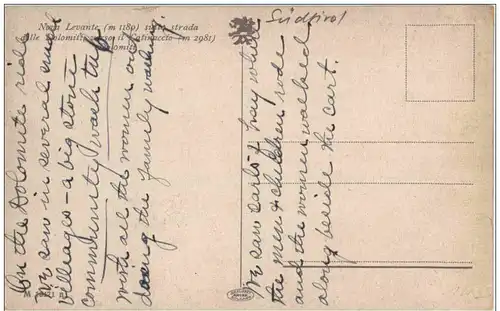 Nova Levante (m 1180) sulla strada
delle Dolomiti verso il Catinaccio (m 2981)
Dolomiti
Südtirol
On the Dolomite ride
we saw in several small
villages - a big stone
community wash tub
with all the women out
doing the family washing.
We saw carts of hay where
the men & children rode
and the women walked
along beside the cart.